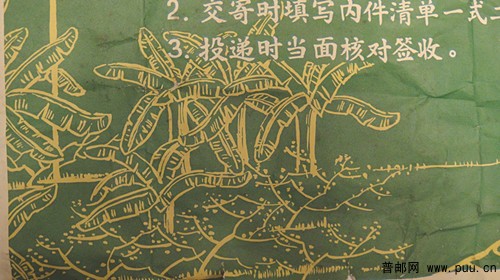 2. 交寄时填写内件清单一式
3. 投递时当面核对签收。
普邮网 www.puu.cn